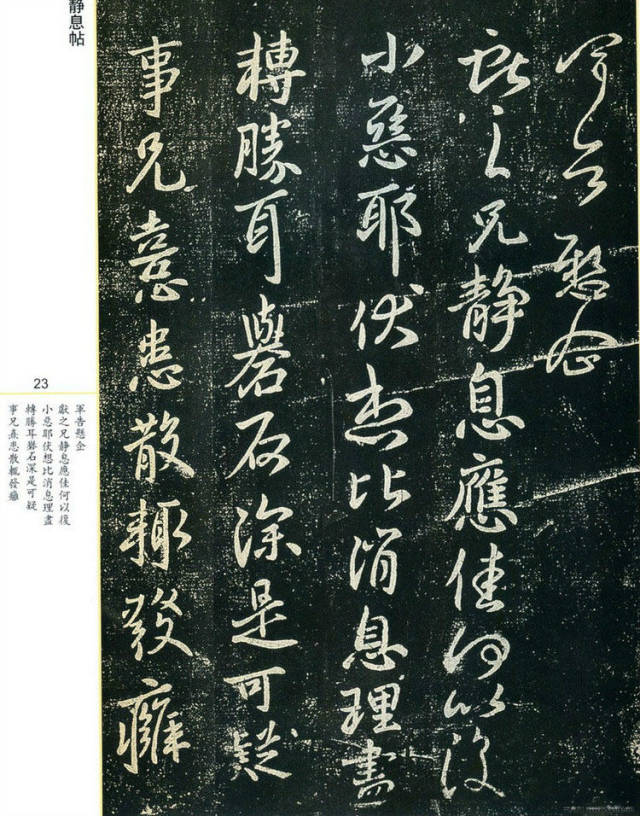 軍告懸企
獻之兄静息應佳何以復
小惡耶伏想比消息理盡
轉勝耳礜石深是可疑
事兄憙患散輒發癰
静息帖
23
軍告懸企
獻之兄静息應佳何以復
小惡耶伏想比消息理盡
轉勝耳礜石深是可疑
事兄憙患散輒發癰